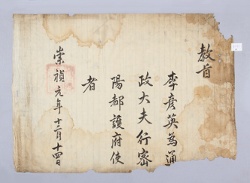 教旨
李彦英為通
政大夫行密
陽都護府使
者
崇禎元年十二月十四日